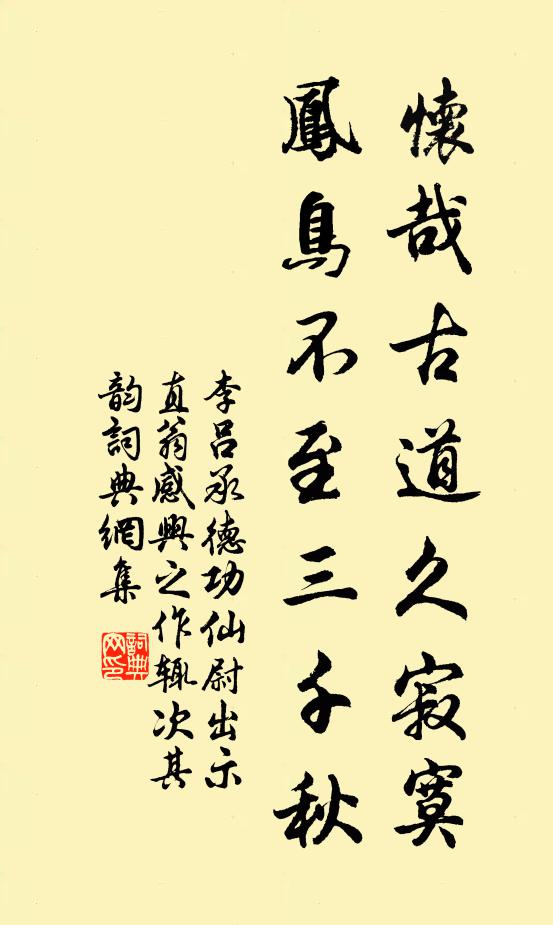 懷哉古道久寂寞
鳳鳥不至三千秋
李呂承德功仙尉出示
直翁感興之作輒次其
韵詞典網集
詞典网印